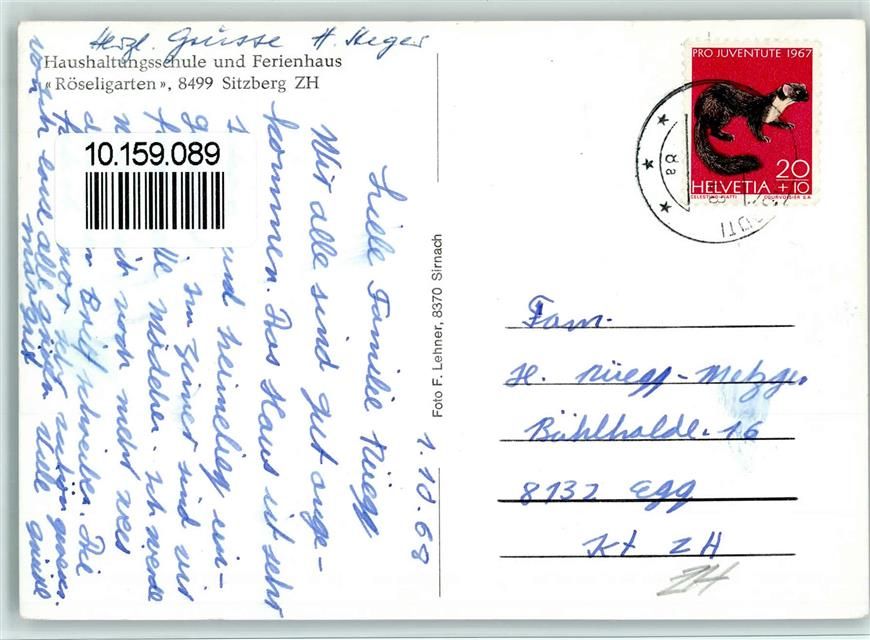 Herzl. Grüsse H. Heger
Haushaltungsschule und Ferienhaus
«Röseligarten», 8499 Sitzberg ZH
10.159.089
1.10.68
Liebe Familie Rüegg
Wir alle sind gut ange-
kommen. Das Haus ist sehr
und heimelig ein-
Im Zimer sind wir
Mädchen. ich werde
ich noch mehr
Brief schreiben. Die
war sehr schön
von ich euch alle grüssen viele grüsse
Margrit
Foto F. Lehner, 8370 Sirnach
PRO JUVENTUTE 1967
20
+10
HELVETIA
CELESTINO PIATTI COURVOISIER S.A.
Fam.
H. Rüegg-Metzger
Bühlhalde. 16
8132 Egg
Kt ZH
ZH